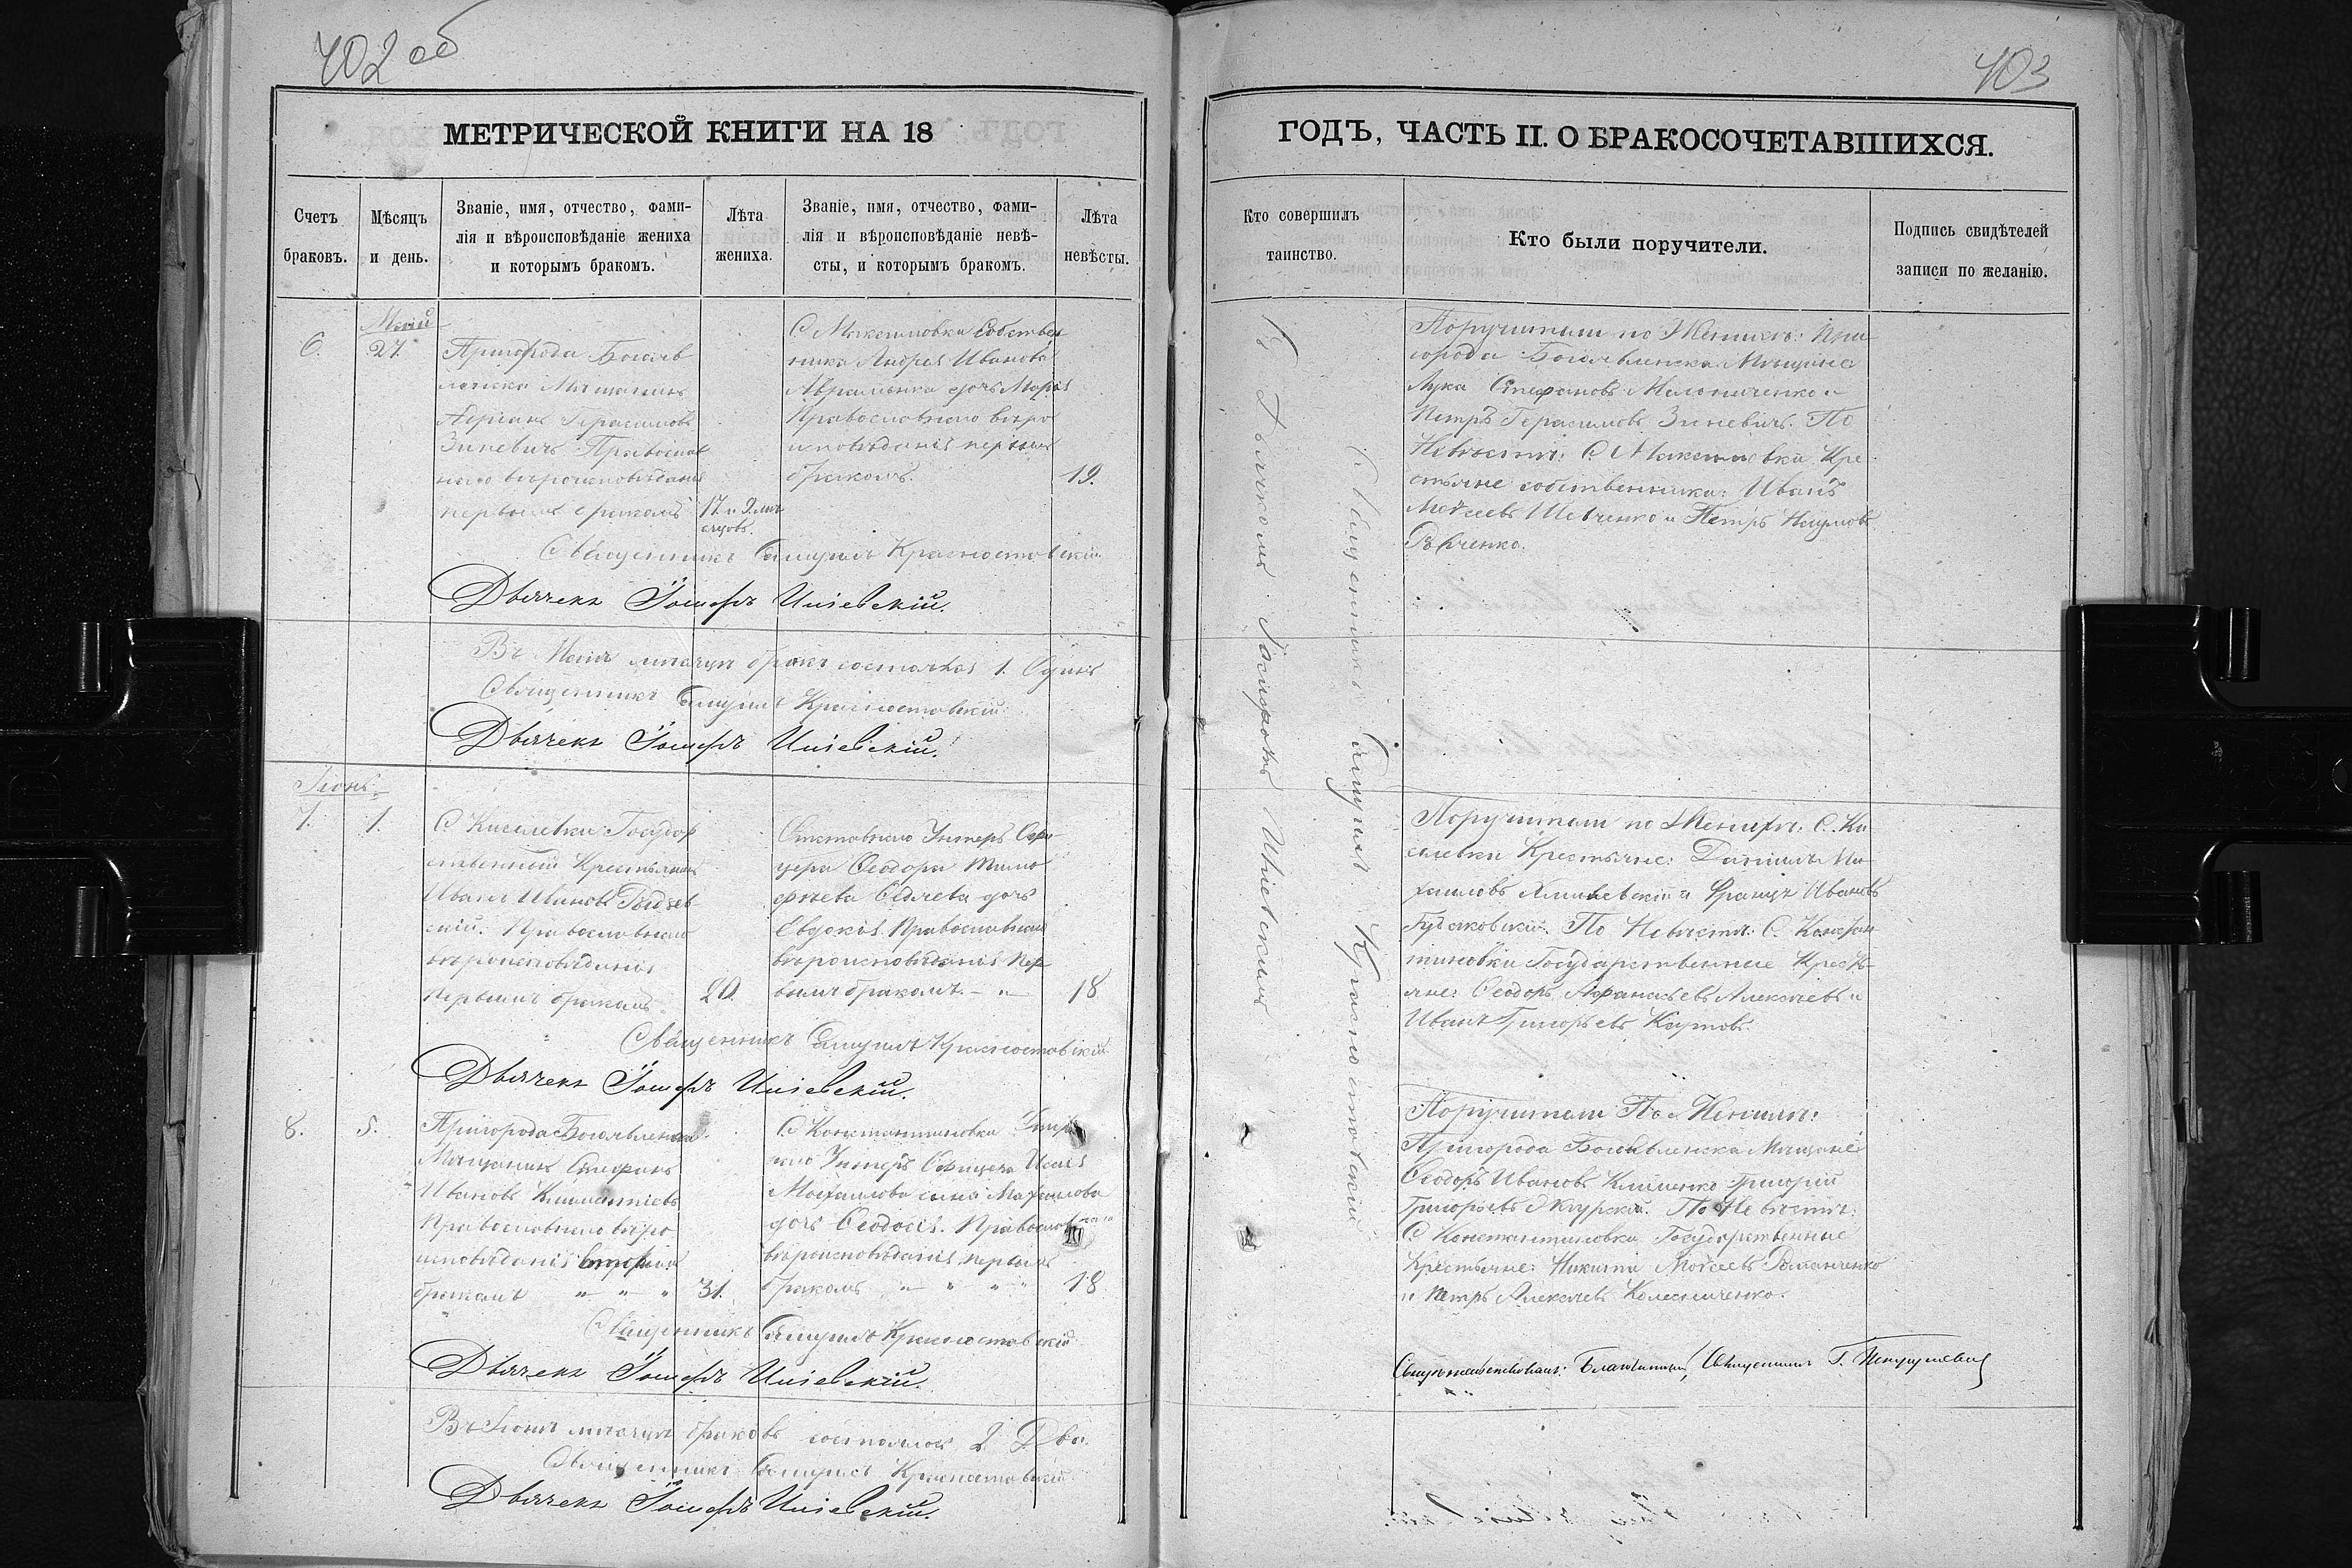 402 об
МЕТРИЧЕСКОЙ КНИГИ НА 18
Счетъ
браковъ.
Мѣсяцъ
и день.
Званіе, имя, отчество, фами-
лія и вѣроисповѣданіе жениха
и которымъ бракомъ.
Лѣта
жениха.
Званіе, имя, отчество, фами-
лія и вѣроисповѣданіе невѣ-
сты, и которымъ бракомъ.
Лѣта
невѣсты.
6.
Май
27.
Пригорода Богояв
ленска Мѣщанинъ
Герасимовъ
Зиневичъ Православ
наго вѣроисповѣданія
первымъ бракомъ
17. и 9. мѣ
сяцовъ.
С Максимовки Собствен
ника Андрея Иванова
Авраменка дочь Марія
Православнаго вѣро
исповѣданія первымъ
бракомъ.
19.
Священникъ Самуилъ Красностовскій
Дьячекъ Іосифъ Иліевскій.
Въ Маѣ мѣсяцѣ бракъ состоялся 1. Одинъ
Священникъ Самуилъ Красностовскій
Дьячекъ Іосифъ Иліевскій.
Іюнь
7.
1.
С Киселевки Государ
ственный Крестьянинъ
Иванъ Ивановъ
скій. Православнаго
вѣроисповѣданія
первымъ бракомъ
20.
Отставнаго Унтеръ Офи
цера Ѳеодора Тимо
фѣева Сѣдлева дочь
Евдокія Православнаго
вѣроисповѣданія пер
вымъ бракомъ. - "
18
Священникъ Самуилъ Красностовскій
Дьячекъ Іосифъ Иліевскій.
8.
5.
Пригорода Богоявленска
Мѣщанинъ Стефанъ
Ивановъ Климентіевъ
Православнаго вѣро
исповѣданія вторымъ
бракомъ " " "
31.
С Константиновки
Унтеръ Офицера Исаія
Михаилова сына Михаилова
дочь Ѳеодосія. Православнаго
вѣроисповѣданія первымъ
бракомъ " " " "
18
Священникъ Самуилъ Красностовскій
Дьячекъ Іосифъ Иліевскій.
Въ Іюнѣ мѣсяцѣ браковъ состоялось 2. Два.
Священникъ Самуилъ Красностовскій
Дьячекъ Іосифъ Иліевскій.
403
ГОДЪ, ЧАСТЬ II. О БРАКОСОЧЕТАВШИХСЯ.
Кто совершилъ
таинство.
Кто были поручители.
Подпись свидѣтелей
записи по желанію.
Священникъ Самуилъ Красностовскій
С Дьячкомъ Іосифомъ Иліевскимъ
Поручители по Женихѣ: При
города Богоявленска Мѣщане
Лука Стефановъ Мельниченко и
Петръ Герасимовъ Зиневичъ. По
Невѣстѣ: С Максимовки Кре
стьяне собственники: Иванъ
Моѵсеевъ Шевченко и Петръ Наумовъ
Поручители по Женихѣ: С. Ки
селевки Крестьяне: Даніилъ Ми
хаиловъ и Францъ Ивановъ
По Невѣстѣ: С. Констан
тиновки Государственные Кресть
яне: Ѳеодоръ Афанасьевъ Алексѣевъ и
Иванъ Григорьевъ Карповъ.
Поручители По Женихѣ:
Пригорода Богоявленска Мѣщане
Ѳеодоръ Ивановъ Клименко Григорій
Григорьевъ По Невѣстѣ:
С Константиновки Государственные
Крестьяне: Никита Моѵсеевъ Романченко
и Петръ Алексѣевъ Колесниченко.
Свидѣтельствовалъ: Благочинный, Священникъ Г.